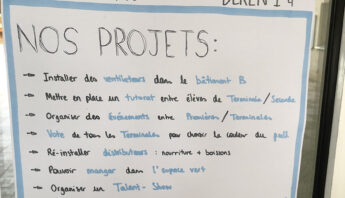 NOS PROJETS:
→ Installer des ventilateurs dans le bâtiment B
→ Mettre en place un tutorat entre élèves de Terminale / Seconde
→ Organiser des Événements entre Premières / Terminales
→ Vote de tous les Terminales pour choisir la couleur du pull
→ Ré-installer distributeurs : nourriture + boissons
→ Pouvoir manger dans l'espace vert
→ Organiser un Talent-Show